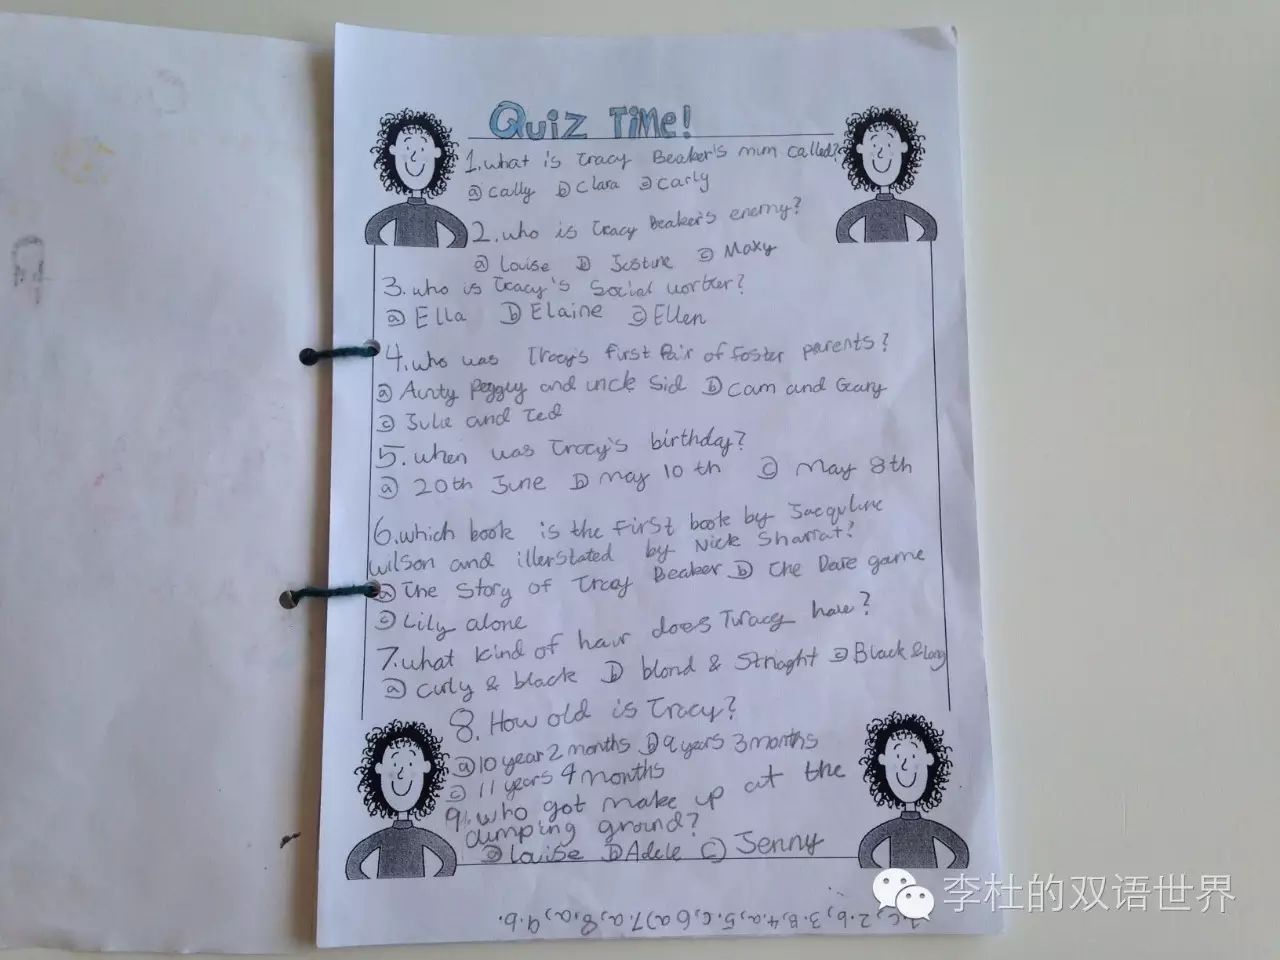 Quiz Time!
1. what is Tracy Beaker's mum called?
ⓐ cally ⓑ Clara ⓒ Carly
2. who is Tracy Beaker's enemy?
ⓐ Louise ⓑ Justine ⓒ Maxy
3. who is Tracy's Social worker?
ⓐ Ella ⓑ Elaine ⓒ Ellen
4. who was Tracy's first Pair of foster parents?
ⓐ Aunty Peggy and uncle Sid ⓑ Cam and Gary
ⓒ Julie and Ted
5. when was Tracy's birthday?
ⓐ 20th June ⓑ may 10th ⓒ may 8th
6. which book is the first book by Jacquline
wilson and illerstated by Nick Sharrat?
ⓐ The Story of Tracy Beaker ⓑ The Dare game
ⓒ Lily alone
7. what kind of hair does Tracy have?
ⓐ curly & black ⓑ blond & Striaght ⓒ Black & long
8. How old is Tracy?
ⓐ 10 year 2 months ⓑ 9 years 3 months
ⓒ 11 years 4 months
9. who got make up at the
dumping ground?
ⓐ Louise ⓑ Adele ⓒ Jenny
1.c, 2.b, 3.B, 4.a, 5.c, 6a) 7.a, 8.a, 9.b.
李杜的双语世界